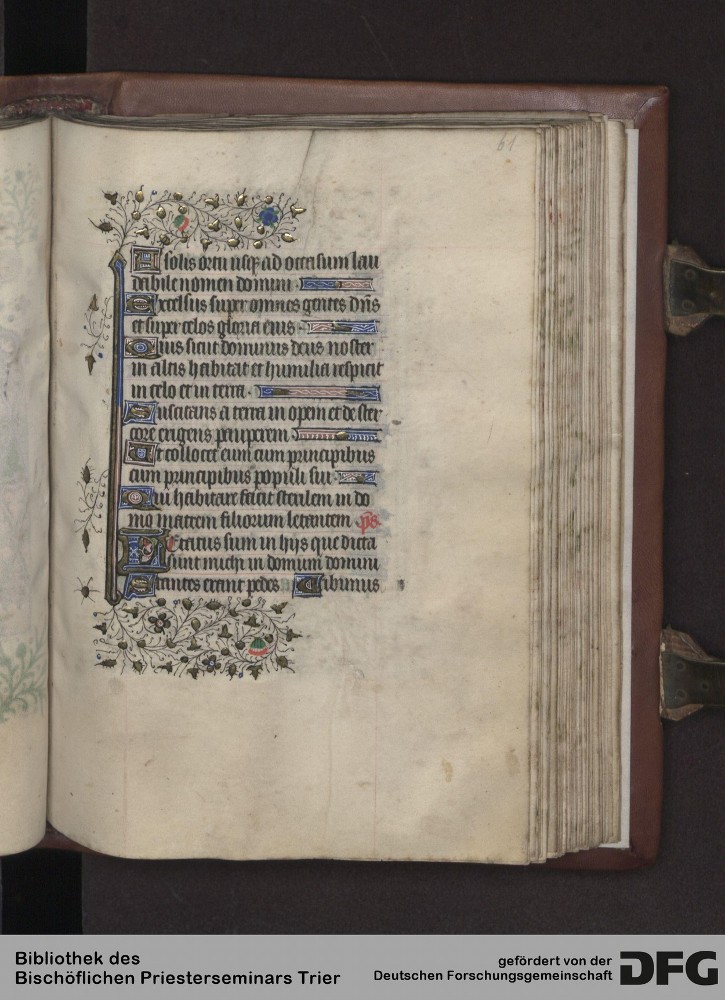 61
A solis ortu usq; ad occasum lau
dabile nomen domini
Excelsus super omnes gentes dn̄s
et super celos gloria eius
Quis sicut dominus deus noster
in altis habitat et humilia respicit
in celo et in terra
Suscitans a terra inopem et de ster
core erigens pauperem
Ut collocet eum cum principibus
cum principibus populi sui
Qui habitare facit sterilem in do
mo matrem filiorum letantem p̄s
Letatus sum in hijs que dicta
sunt michi in domum domini
Stantes erant pedes ibimus
Bibliothek des
Bischöflichen Priesterseminars Trier
gefördert von der
Deutschen Forschungsgemeinschaft
DFG